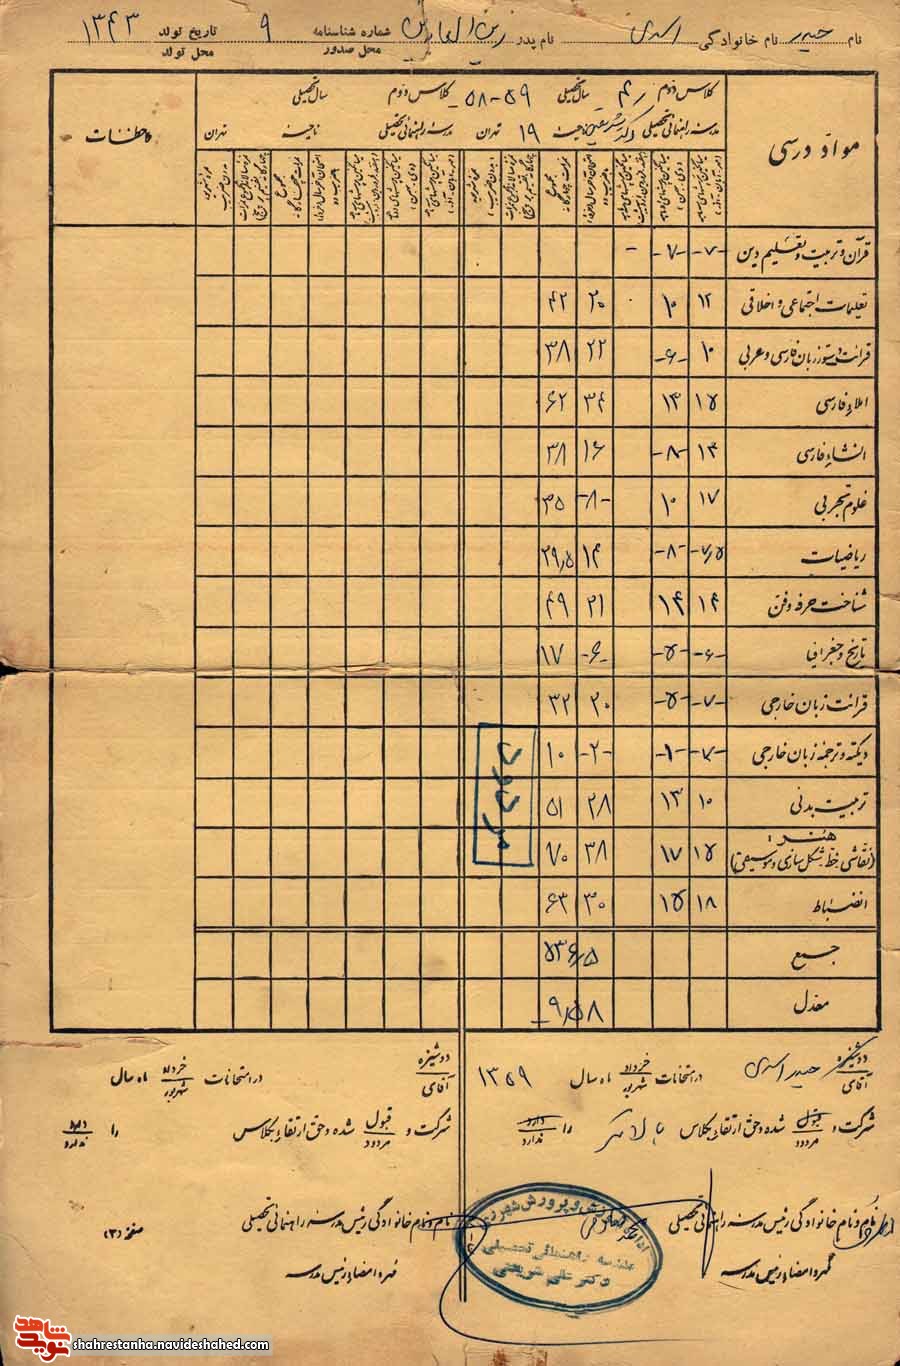 نام حیدر نام خانوادگی اسدی نام پدر زین العابدین شماره شناسنامه ۹ تاریخ تولد ۱۳۴۳
محل صدور محل تولد
مواد درسی کلاس دوم سال تحصیلی ۵۹-۵۸ کلاس دوم سال تحصیلی ملاحظات
مدرسه راهنمائی تحصیلی دکتر شریعتی ناحیه ۱۹ تهران مدرسه راهنمائی تحصیلی ناحیه تهران
قرآن و تربیت و تعلیم دین -۷- -۷- -
تعلیمات اجتماعی و اخلاقی ۱۲ ۱۰ ۲۰ ۴۲
قرائت و دستور زبان فارسی و عربی ۱۰ -۶- ۲۲ ۳۸
املاء فارسی ۱۵ ۱۳ ۳۴ ۶۲
انشاء فارسی ۱۴ -۸- ۱۶ ۳۸
علوم تجربی ۱۷ ۱۰ -۸- ۳۵
ریاضیات -۷٫۵- -۸- ۱۴ ۲۹٫۵
شناخت حرفه و فن ۱۴ ۱۴ ۲۱ ۴۹
تاریخ و جغرافیا -۶- -۵- -۶- ۱۷
قرائت زبان خارجی -۷- -۵- ۲۰ ۳۲
دیکته و ترجمه زبان خارجی -۷- -۱- -۲- ۱۰
تربیت بدنی ۱۰ ۱۳ ۲۸ ۵۱
هنر:
(نقاشی خط شکل سازی و موسیقی) ۱۵ ۱۷ ۳۸ ۷۰
انضباط ۱۸ ۱۵ ۳۰ ۶۳
مردود
جمع ۵۳۶٫۵
معدل ۹٫۵۸
دوشیزه
آقای حیدر اسدی در امتحانات خرداد شهریور ماه سال ۱۳۵۹
شرکت و قبول مردود شده و حق ارتقاء بکلاس بالاتر را دارد ندارد
نام و نام خانوادگی رئیس مدرسه راهنمائی تحصیلی
مهر و امضاء رئیس مدرسه
اداره آموزش و پرورش شهر ری
مدرسه راهنمائی تحصیلی
دکتر علی شریعتی
دوشیزه
آقای در امتحانات خرداد شهریور ماه سال
شرکت و قبول مردود شده و حق ارتقاء بکلاس را دارد ندارد
نام و نام خانوادگی رئیس مدرسه راهنمائی تحصیلی صفحه (۳)
مهر و امضاء رئیس مدرسه
نوید شاهد
shahrestanha.navideshahed.com